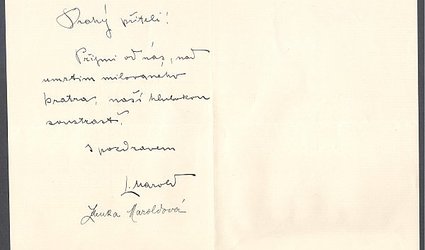 Drahý příteli!
Přijmi od nás, nad
úmrtím milovaného
bratra, naší hlubokou
soustrast.
S pozdravem
L. Marold
Zdenka Maroldová